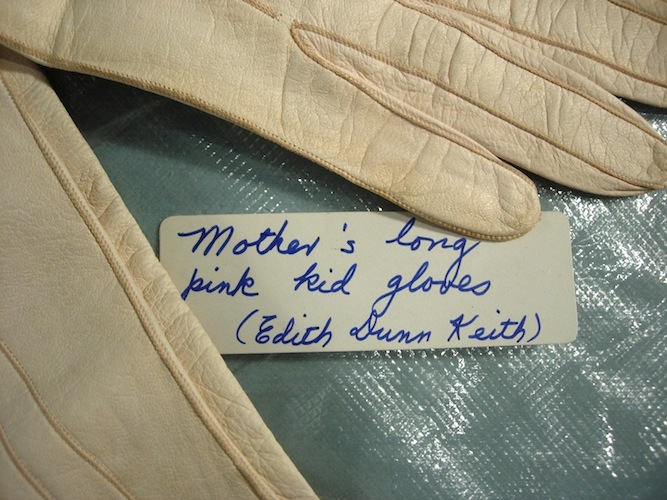 Mother's long
pink kid gloves
(Edith Dunn Keith)